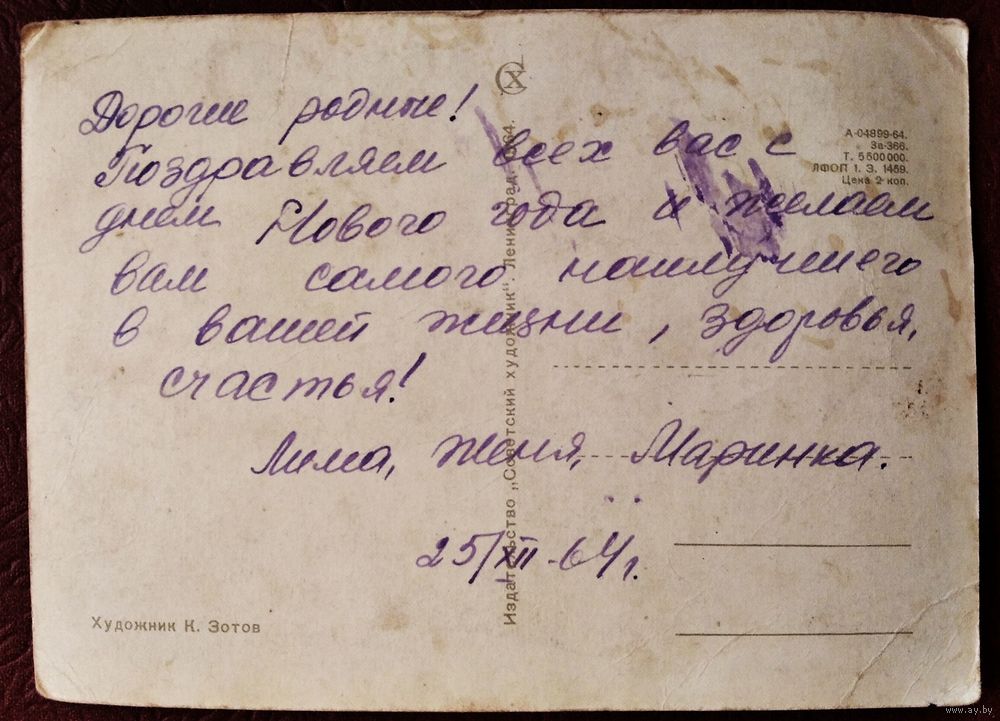 Дорогие родные!
Поздравляем всех вас с
днем Нового года и желаем
вам самого наилучшего
в вашей жизни, здоровья,
счастья!
Лима, Женя, Маринка.
25/XII-64 г.
Художник К. Зотов
Издательство „Советский художник“. Ленинград. 1964.
А-04899-64.
Зв-366.
Т. 5 500 000.
ЛФОП 1. З. 1459.
Цена 2 коп.
www.ay.by